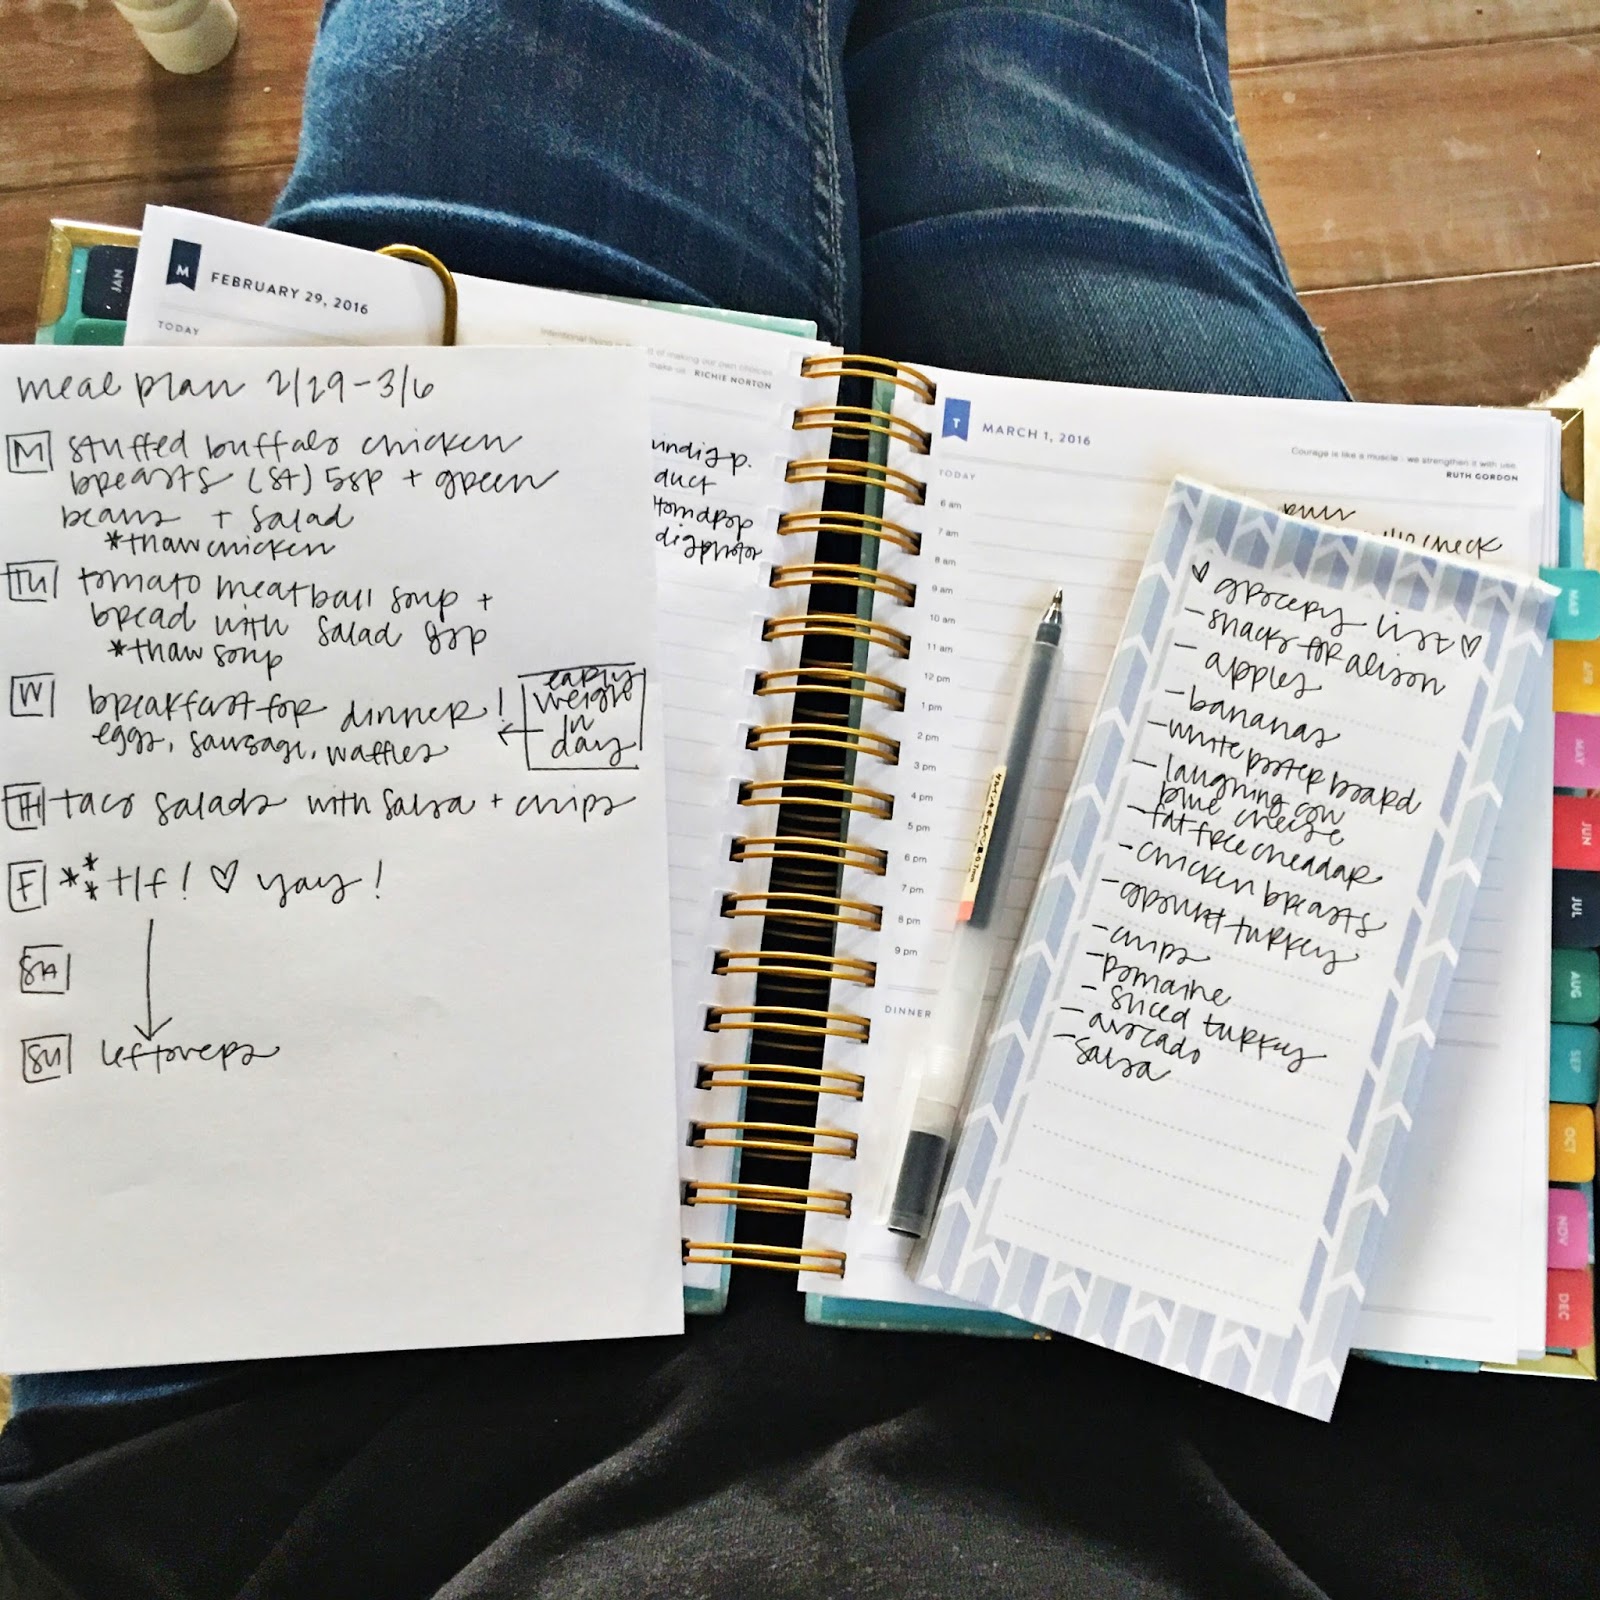 JAN
M FEBRUARY 29, 2016
TODAY
RICHIE NORTON
meal plan 2/29-3/6
M stuffed buffalo chicken
breasts (st) 5sp + green
beans + salad
*thaw chicken
TU tomato meatball soup +
bread with salad
*thaw soup
W breakfast for dinner!
eggs, sausage, waffles
early
weigh
in
day
TH taco salads with salsa + chips
F *** t/f! ♡ yay!
SA
SU leftovers
duct
T MARCH 1, 2016
Courage is like a muscle - we strengthen it with use.
RUTH GORDON
TODAY
6 am
7 am
8 am
9 am
10 am
11 am
12 pm
1 pm
2 pm
3 pm
4 pm
5 pm
6 pm
7 pm
8 pm
9 pm
DINNER
check
♡ grocery list ♡
- snacks for alison
- apples
- bananas
- white poster board
- laughing cow
blue cheese
- fat free cheddar
- chicken breasts
- ground turkey
- chips
- romaine
- sliced turkey
- avocado
- salsa
MAR
APR
MAY
JUN
JUL
AUG
SEP
OCT
NOV
DEC